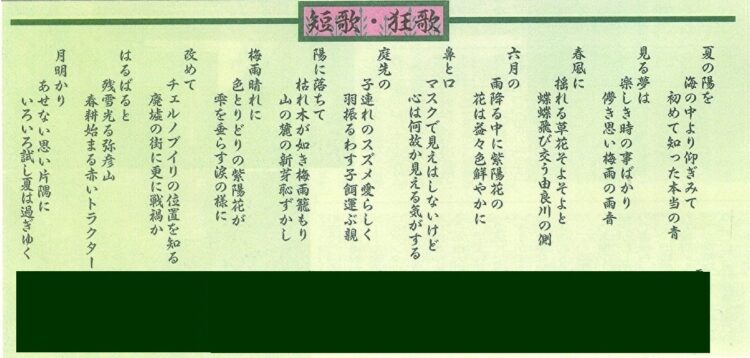 短歌・狂歌
夏の陽を
海の中より仰ぎみて
初めて知った本当の青
見る夢は
楽しき時の事ばかり
儚き思い梅雨の雨音
春風に
揺れる草花そよそよと
蝶蝶飛び交う由良川の側
六月の
雨降る中に紫陽花の
花は益々色鮮やかに
鼻と口
マスクで見えはしないけど
心は何故か見える気がする
庭先の
子連れのスズメ愛らしく
羽振るわす子餌運ぶ親
陽に落ちて
枯れ木が如き梅雨籠もり
山の麓の新芽恥ずかし
梅雨晴れに
色とりどりの紫陽花が
雫を垂らす涙の様に
改めて
チェルノブイリの位置を知る
廃墟の街に更に戦禍か
はるばると
残雪光る弥彦山
春耕始まる赤いトラクター
月明かり
あせない思い片隅に
いろいろ試し夏は過ぎゆく